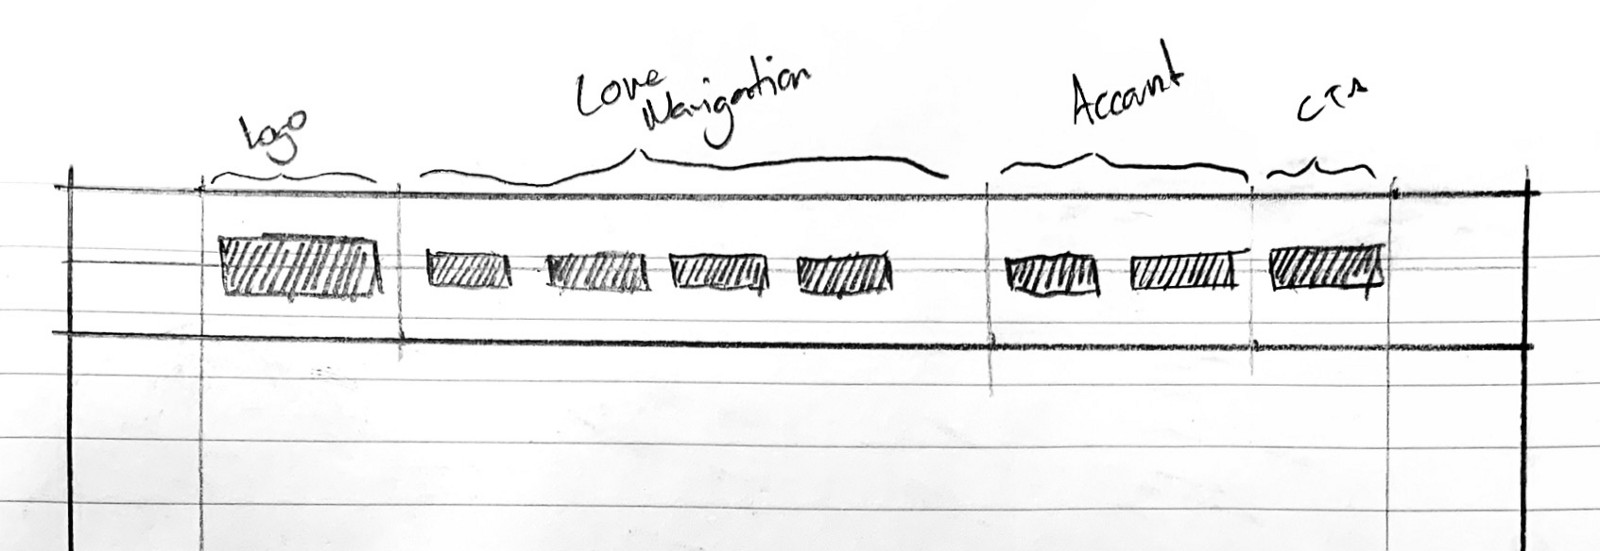 Logo
Core
Navigation
Account
CTA